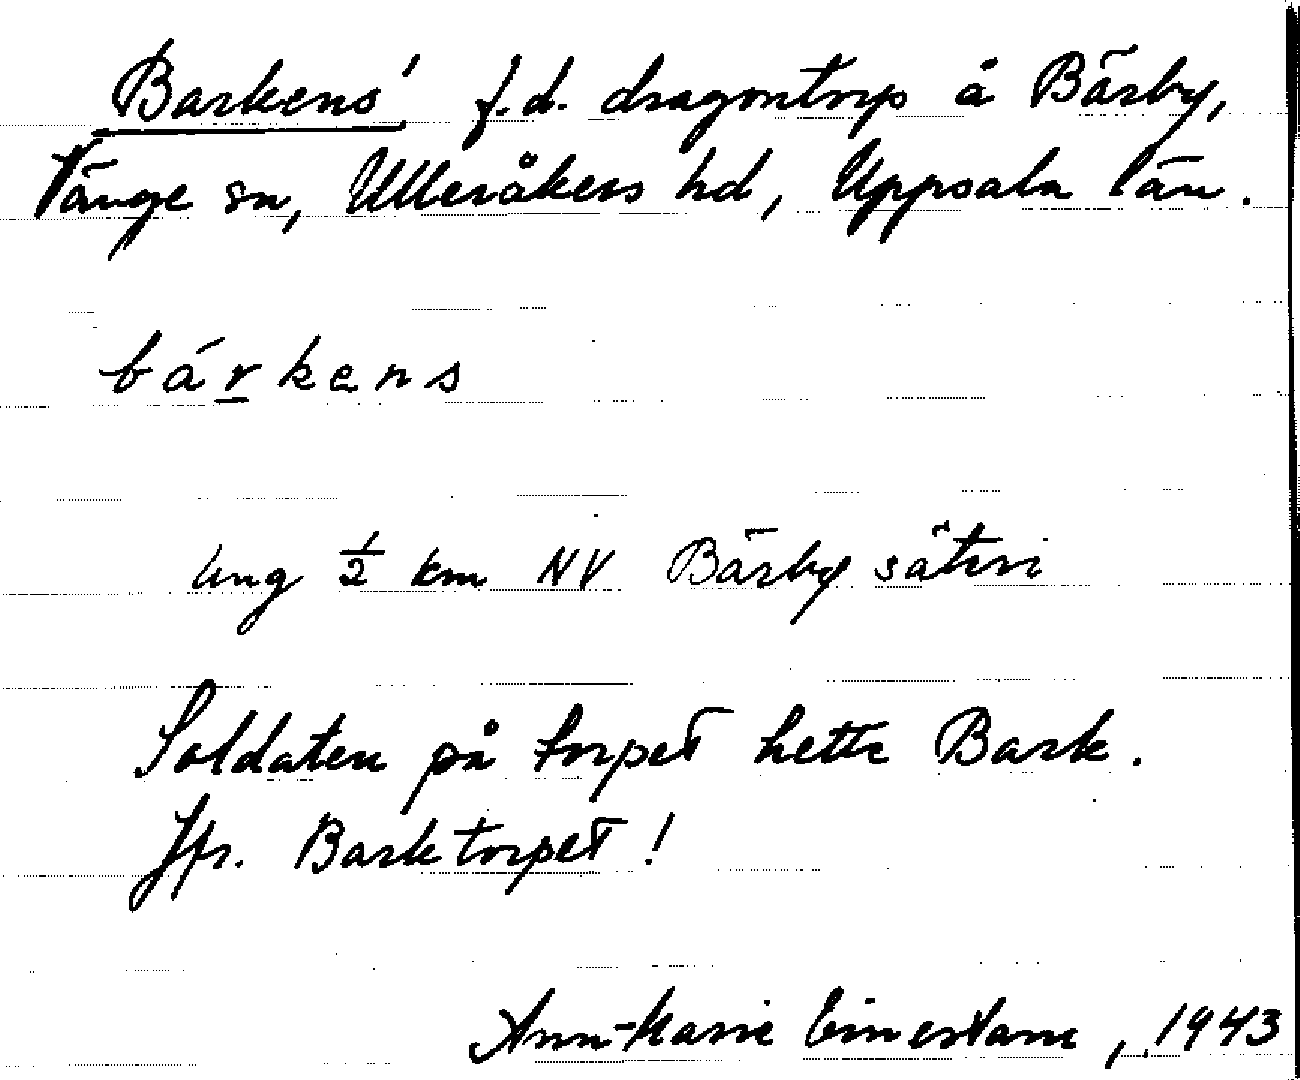 Barkens' f.d. dragontorp å Bärby,
Vänge sn, Ulleråkers hd, Uppsala län.
bárkens
ung 1/2 km NV Bärby säteri
Soldaten på torpet hette Bark.
Jfr. Barktorpet!
Ann-Marie , 1943